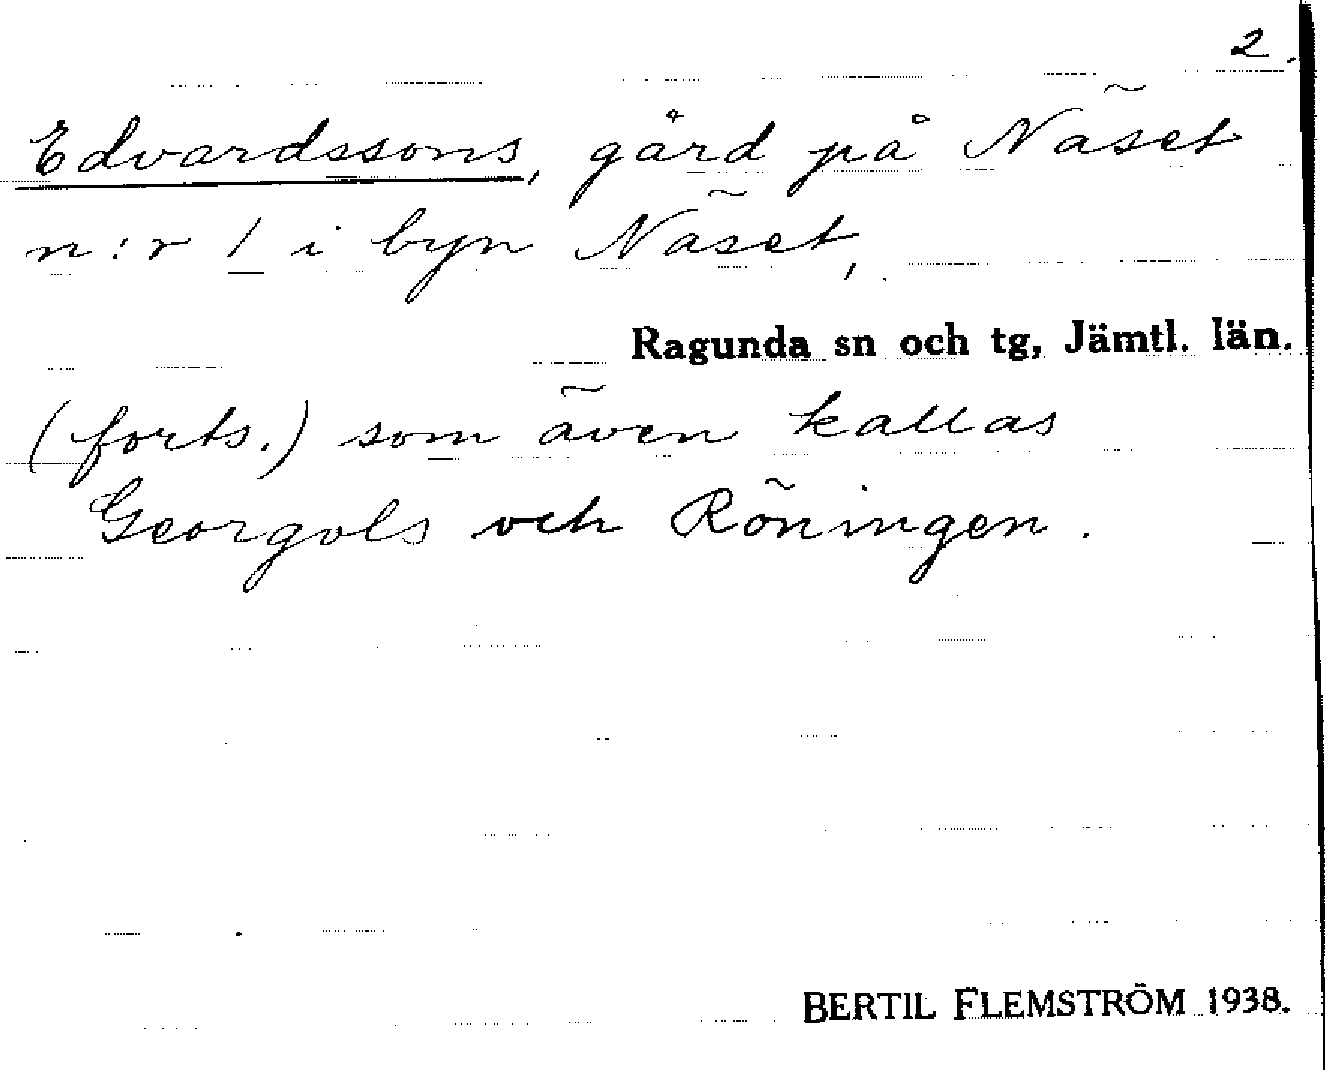 2.
Edvardssons, gård på Näset
n:r 1 i byn Näset,
Ragunda sn och tg, Jämtl. län.
(forts.) som även kallas
Georgols och Röningen.
BERTIL FLEMSTRÖM 1938.